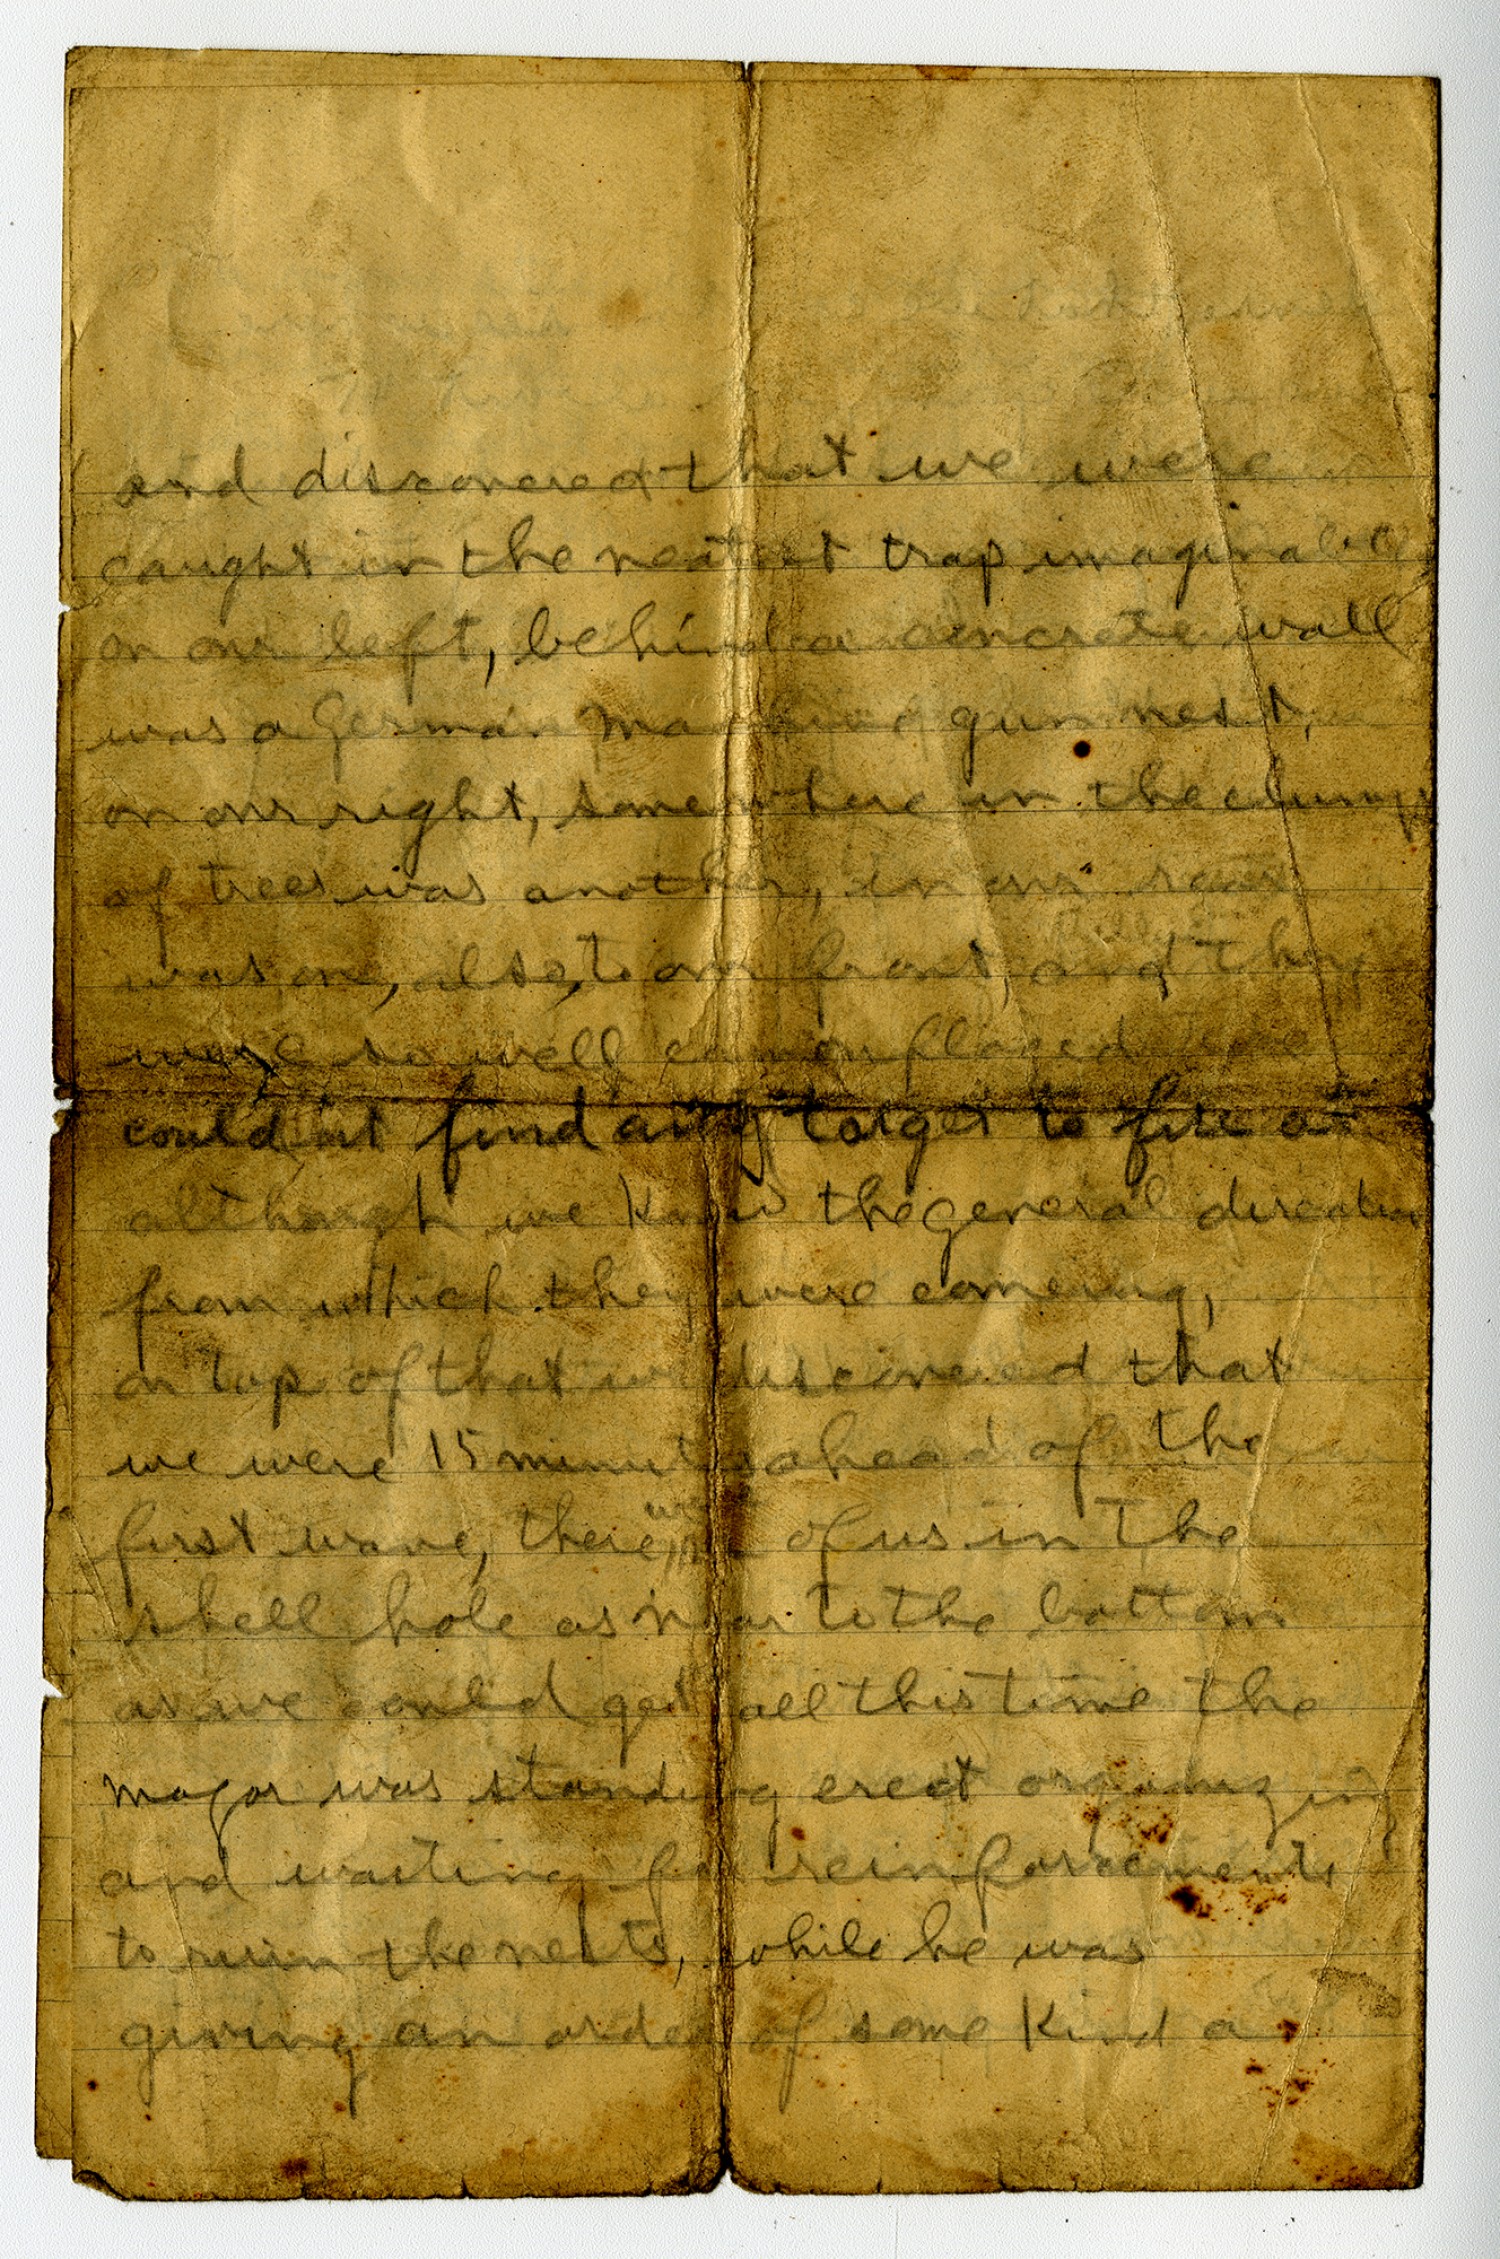 and discovered that we were
caught in the neatest trap imaginable
on our left, behind a concrete wall
was a German machine gun nest,
on our right, somewhere in the clump
of trees was another, in our rear
was one, also, to our front, and they
were so well camonflaged we
could'nt find any target to fire at
although we know the general direction
from which they were comeing,
on top of that we discovered that
we were 15 minutes ahead of the
first wave, there were of us in the
shell hole as near to the bottom
as we could get all this time the
major was standing erect organizing
and waiting for reinforcements
to ruin the nests, while he was
giving an order of some kind a